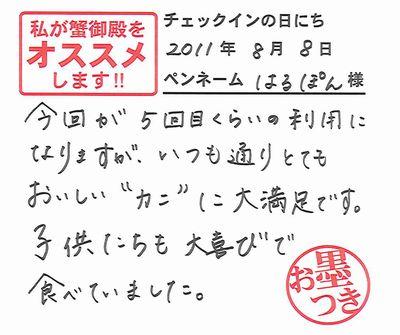 私が蟹御殿を
オススメ
します!!
チェックインの日にち
2011年 8月 8日
ペンネーム はるぽん 様
今回が 5回目くらいの利用に
なりますが、いつも通りとても
おいしい“カニ”に大満足です。
子供たちも 大喜びで
食べていました。
お墨つき